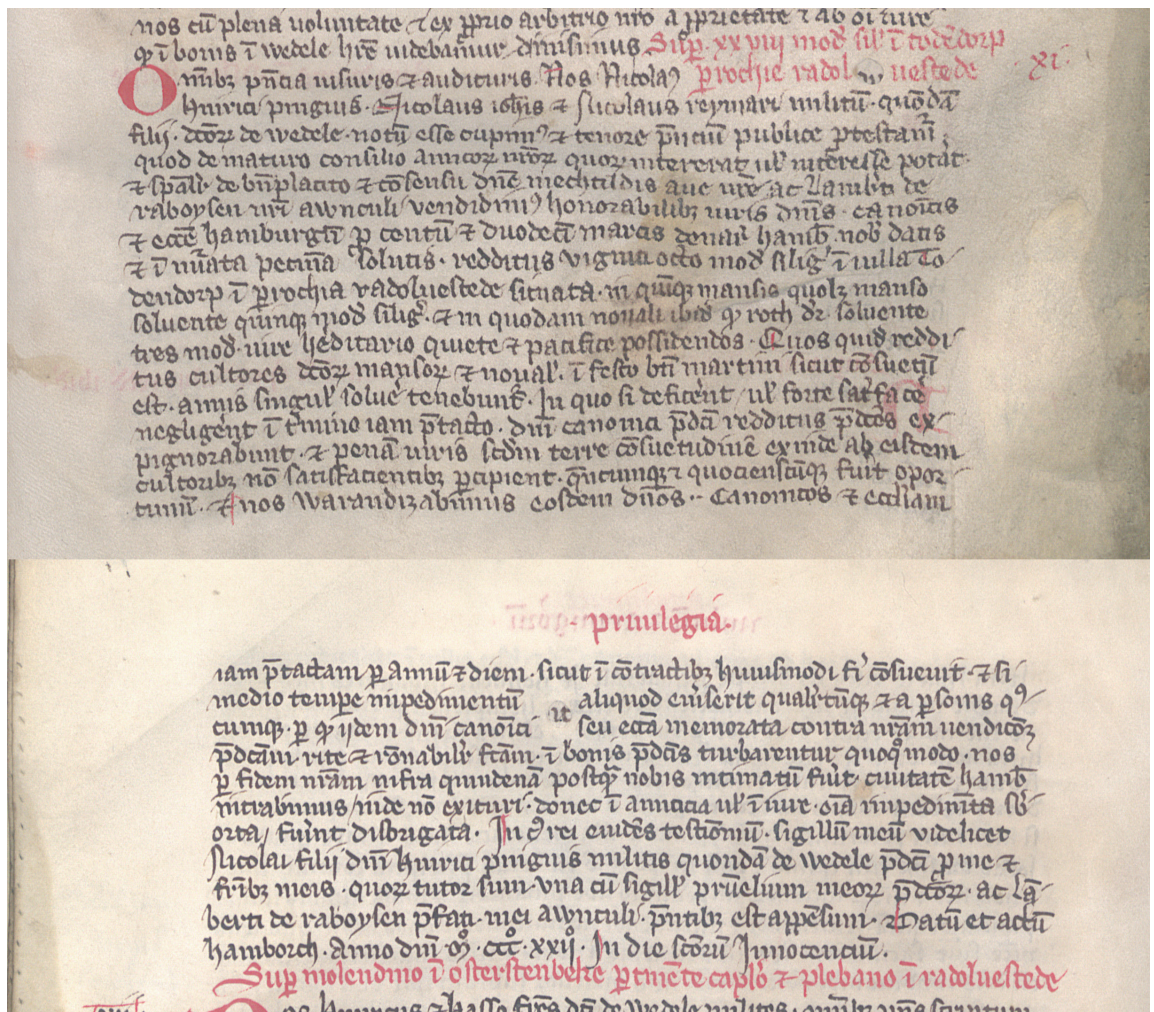 nos cū plena uoluntate ⁊ ex ꝓprio arbitrio nr̄o a ꝓprietate ⁊ ab oī iure
qͥ ī bonis ī wedele hr̄e uidebamur dimisimus Sup̱ xxviii mod̕ sil̕ ī todēdorp
Omībꝫ pn̄cia uisuris ⁊ audituris. Nos Nicola⁹ ꝑrochie radol uestede xi.
hinrici pinguis. Nicolaus ioh̄is ⁊ Nicolaus reymari militū. quōdā
filij. dc̄oꝝ de wedele. notū esse cupim⁹ ⁊ tenore p̄nciū publice ꝓtestam̄
quod de maturo consilio amicoꝝ nr̄oꝝ quoꝝ intererat ul̕ interesse potāt
⁊ sp̄alr̕ de bn̄placito ⁊ cōsensu dn̄e mechtildis aue nr̄e ac Lamb̕ti de
raboysen nr̄i awnculi vendidim⁹ honorabilibꝫ uiris dn̄is. canoīcis
⁊ ecc̄e hamburgēn̄ ꝑ centū ⁊ duodecī marcis denar̕ hamb̄. nob̕ datis
⁊ ī nūata pecun̄a solutis. redditus viginti octo mod̕ silig̕ ī uilla To
dendorp ī ꝑrochia radoluestede situata. in quīqꝫ mansis quolꝫ manso
soluente quinqꝫ mod̕ silig̕. ⁊ in quodam nouali ibid̕ qͥ roth dr̄. soluente
tres mod̕. iure h̕editario quiete ⁊ pacifice possidendos. Quos quid̕ reddi
tus cultores dc̄oꝝ mansoꝝ ⁊ noual̕. ī festo bt̄i martini sicut cōsuetū
est. annis singul̕ solue̕ tenebunt̕. In quo si defic̕ent ul̕ forte satfac̕e
negligent ī t̕mino iam p̄tacto. dn̄i canonici p̄dc̄i redditus p̄dc̄os ex
pignorabunt. ⁊ penā iuris scd̄m terre cōsuetudinē exinde ab eisdem
cultoribꝫ nō satisfacientibꝫ ꝑcipient. qn̄cumqꝫ ⁊ quocienscūqꝫ fuit opor
tunū. Et nos warandizabimus eosdem dn̄os. Canonicos ⁊ eccl̄iam
priuilegia.
iam p̄tactam ꝑ Annū ⁊ diem. sicut ī cōtractibꝫ huiusmodi fi̕ cōsueuit. ⁊ si
medio tempe̱ inpedimentū aliquod em̕serit qualit̕cūqꝫ ⁊ a ꝑsonis qͥ
cumqꝫ. ꝑ qͥ ijdem dn̄i canoīci ut seu ecc̄ia memorata contra nr̄am uendicōꝫ
p̄dc̄am. rite ⁊ rōnabilr̕ fc̄am. ī bonis p̄dc̄is turbarentur quoqͦ modo. nos
ꝑ fidem nr̄am infra quindenā postqͣ nobis intimatū fu̕it. ciuitatē hamb̄
intrabimus / inde nō exituri. donec ī amicicia ul̕ ī iure. oīa inpedimn̄ta sb̕
orta / fu̕int disbrigata. In ꝯ rei euidēs testīomū. sigillū meū videlicet
Nicolai filii dn̄i hinrici pinguis militis quondā de wedele p̄dc̄i ꝓ me ⁊
fr̄ibꝫ meis. quoꝝ tutor sum. vna cū sigill̕ pru̕elium meoꝝ p̄dc̄oꝝ. ac Lā
berti de raboysen p̄fati. mei awnculi. p̄ntibꝫ est app̄ensum. Datū et actū
hamborch. Anno dn̄i mͦ. cccͦ. xxijͦ. In die sc̄orū Innocenciū.
Sup̱ molendino ī osterstenbeke ꝑtinēte cap̄lo ⁊ plebano ī radoluestede